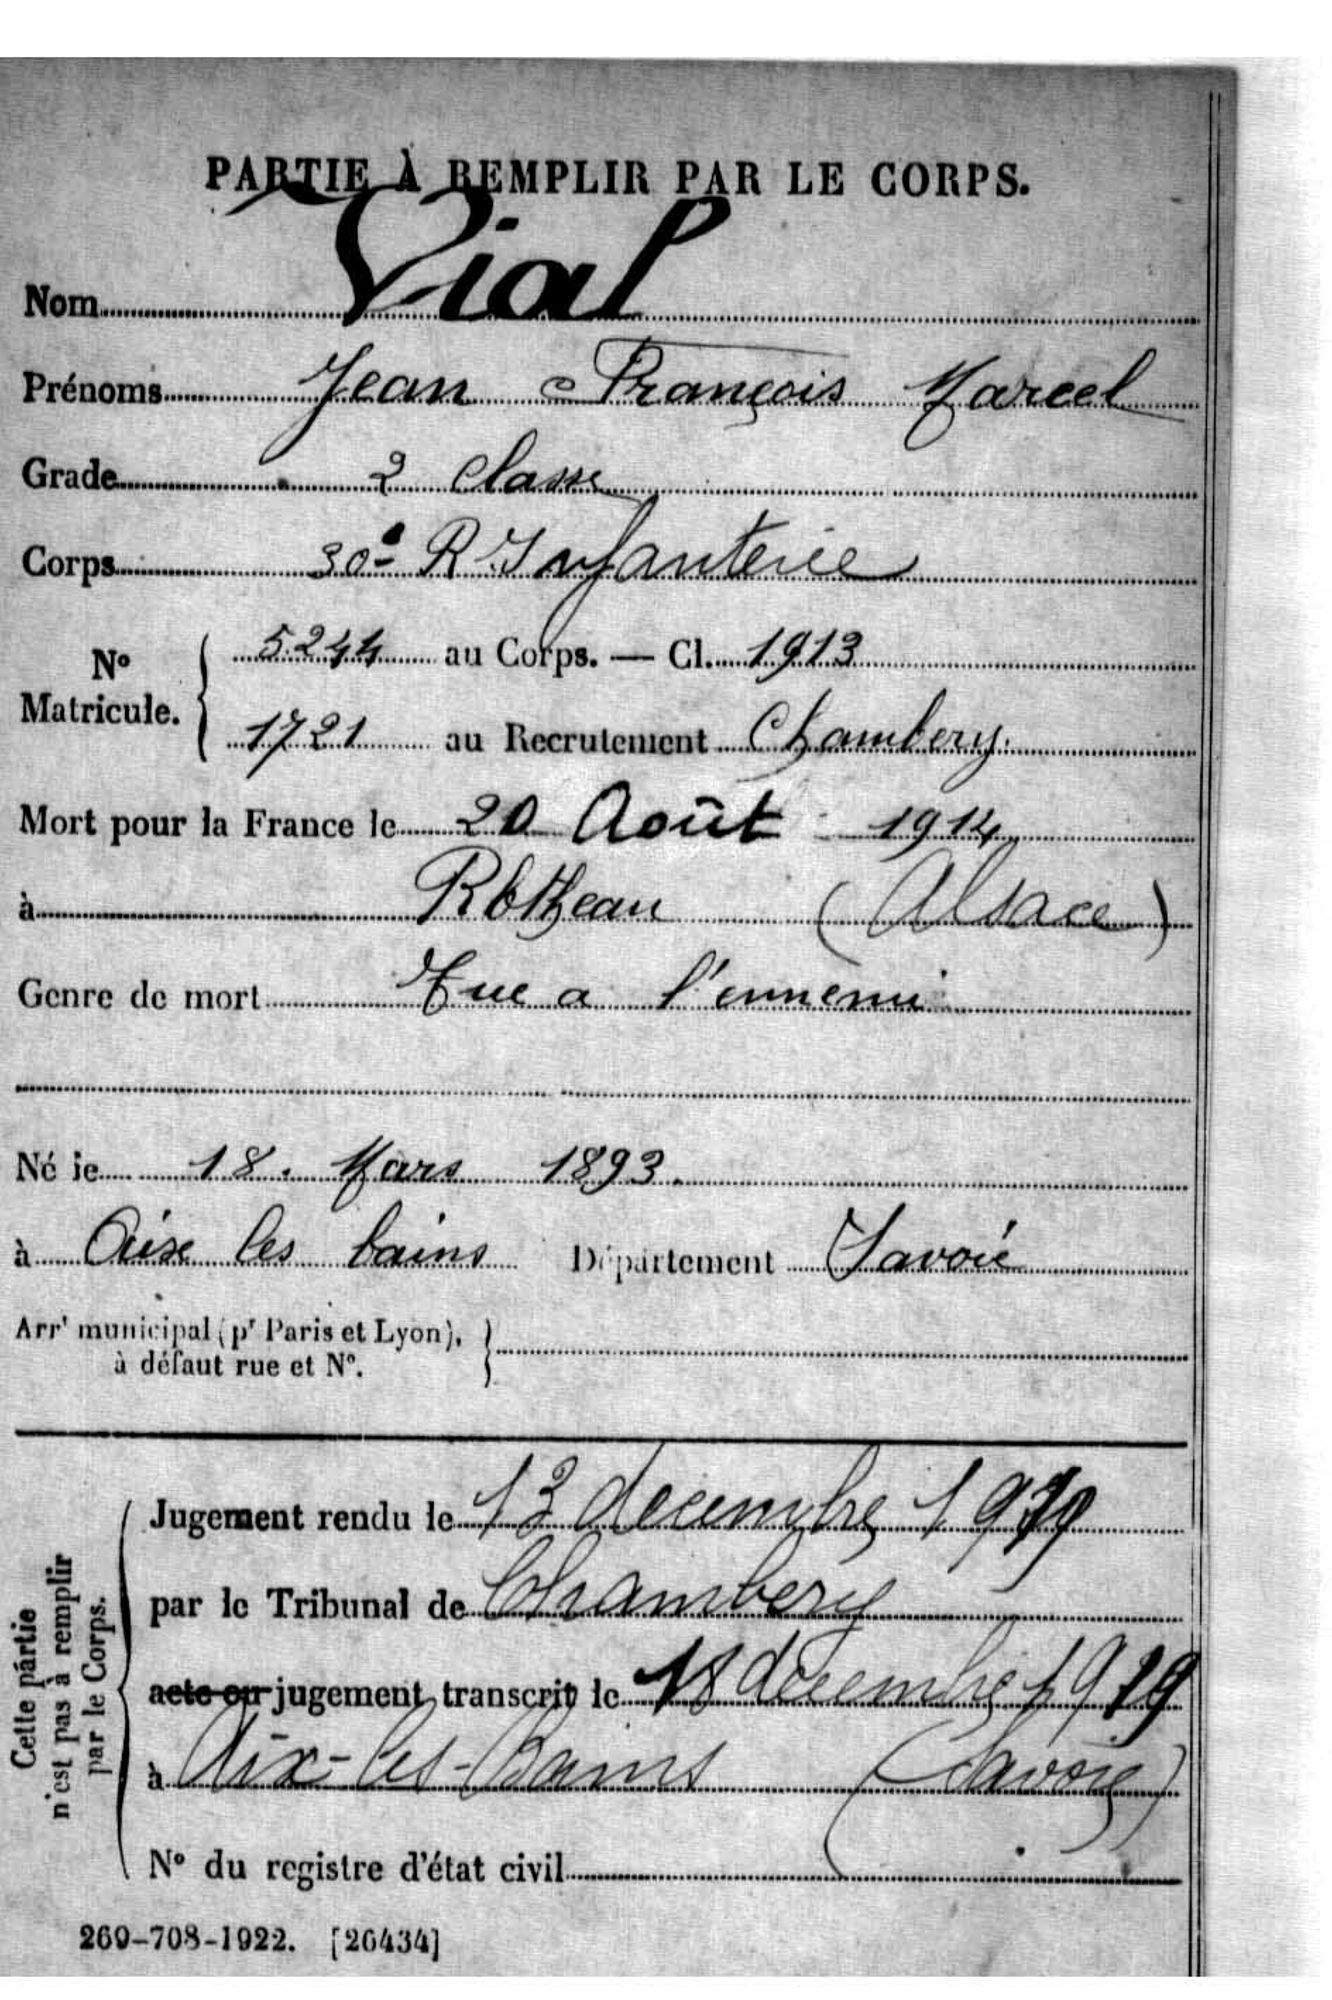 PARTIE À REMPLIR PAR LE CORPS.
Nom Vial
Prénoms Jean François Marcel
Grade 2 classe
Corps 30e R. Infanterie
No Matricule. { 5244 au Corps. — Cl. 1913
1721 au Recrutement Chambery.
Mort pour la France le 20 Août 1914
à Rotheau (Alsace)
Genre de mort Tue a l'ennemi
Né le 18. Mars 1893.
à Aixe les bains Département Savoie
Arrt municipal (pr Paris et Lyon), }
à défaut rue et N°.
Cette partie
n'est pas à remplir
par le Corps.
Jugement rendu le 13 decembre 1919
par le Tribunal de Chambery
acte ou jugement transcrit le 18 decembre 1919
à Aix-les-Bains (Savoie)
N° du registre d'état civil
269-708-1922. [26434]